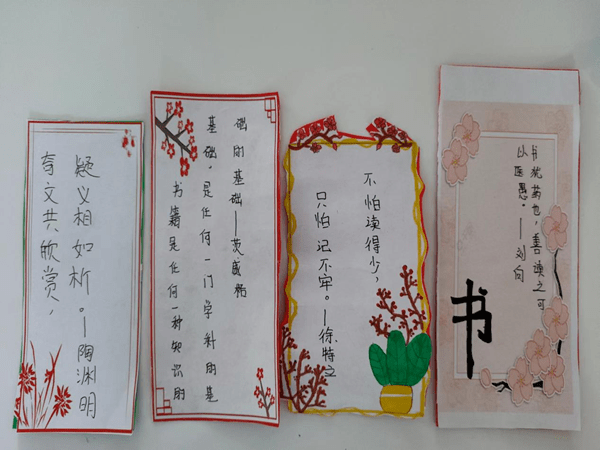 奇文共欣赏，
疑义相如析。—陶渊明
书籍是任何一种知识的
基础，是任何一门学科的基
础的基础——茨威格
不怕读得少，
只怕记不牢。—徐特立
书犹药也，善读之可
以医愚。—刘向
书